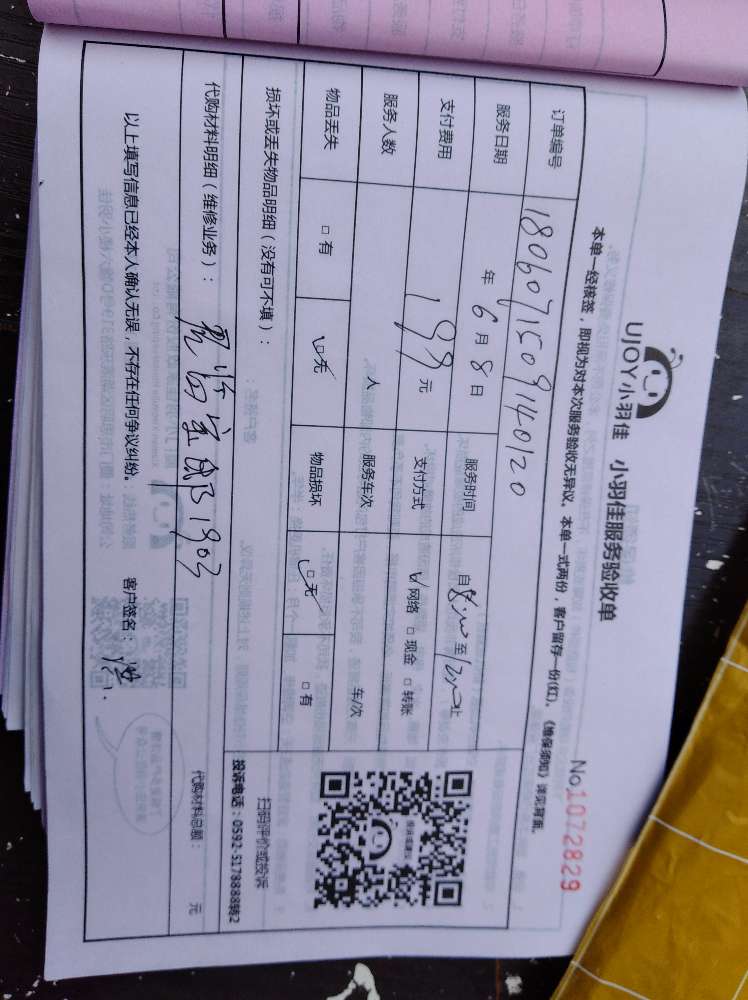 UJOY小羽佳 小羽佳服务验收单
No.1072829
本单一经核签，即视为对本次服务验收无异议。本单一式两份，客户留存一份(红)。《维保须知》详见背面。
订单编号 1806071509140120
服务日期 年 6 月 8 日 服务时间 自 8:00 至 12:00 止
支付费用 199 元 支付方式 ☑ 网络 □ 现金 □ 转账
服务人数 人 服务车次 车/次
物品丢失 □ 有 ☑ 无 物品损坏 ☑ 无 □ 有
损坏或丢失物品明细（没有可不填）：
扫码评价或投诉
投诉电话：0592-5178888转2
代购材料明细（维修业务）： 1903
代购材料总额： 元
以上填写信息已经本人确认无误，不存在任何争议纠纷。 客户签名：